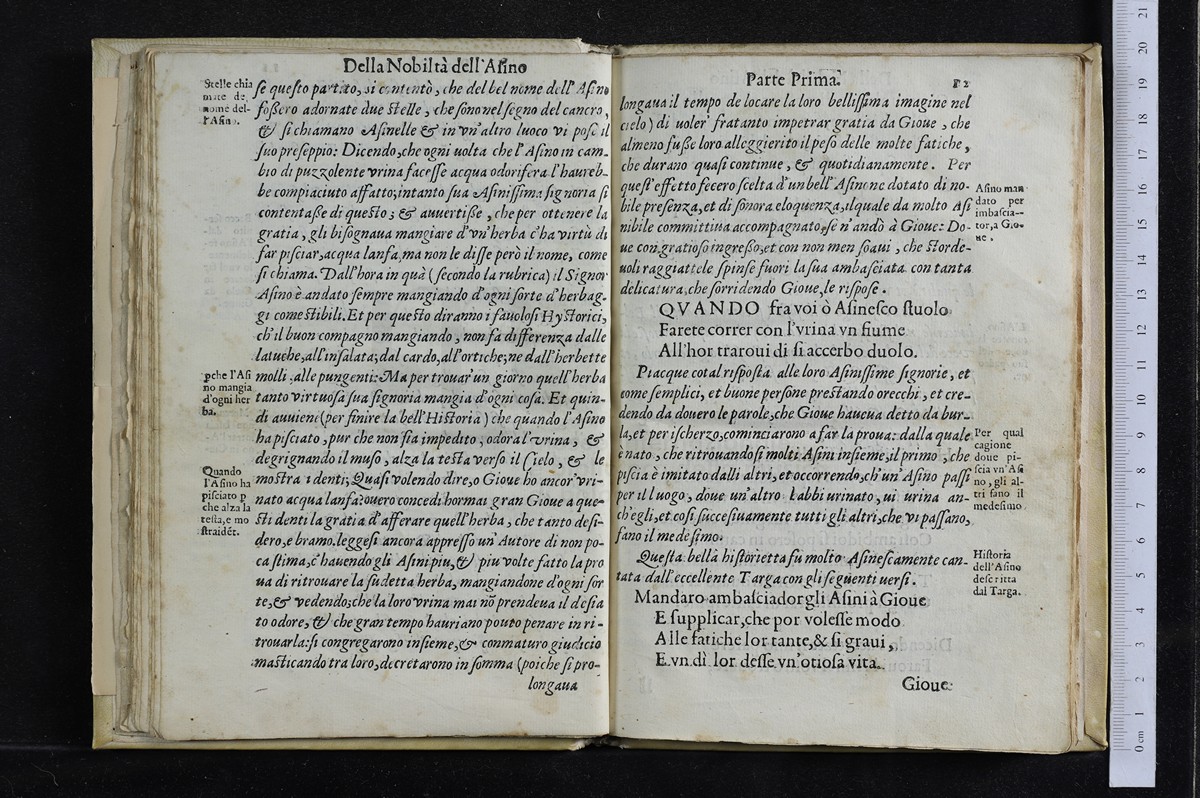 Della Nobiltà dell'Asino
Stelle chia
mate de
nome del-
l'Asino.
se questo partito, si contentò, che del bel nome dell'Asino
fossero adornate due stelle, che sono nel segno del cancro,
& si chiamano Asinelle & in vn'altro luoco vi pose il
suo preseppio: Dicendo, che ogni uolta che l'Asino in cam-
bio di puzzolente vrina facesse acqua odorifera l'haureb-
be compiaciuto affatto; intanto sua Asinissima signoria si
contentasse di questo; & auuertisse, che per ottenere la
gratia, gli bisognaua mangiare d'vn'herba c'ha virtù di
far pisciar, acqua lanfa, ma non le disse però il nome, come
si chiama. Dall'hora in quà (secondo la rubrica) il Signor
Asino è andato sempre mangiando d'ogni sorte d'herbag-
gi comestibili. Et per questo diranno i fauolosi Hystorici,
ch'il buon compagno mangiando, non fa differenza dalle
latuche, all'insalata; dal cardo, all'ortiche; ne dall'herbette
pche l'Asi
no mangia
d'ogni her
ba.
molli, alle pungenti: Ma per trouar' un giorno quell'herba
tanto virtuosa sua signoria mangia d'ogni cosa. Et quin-
di auuiene (per finire la bell'Historia) che quando l'Asino
ha pisciato, pur che non sia impedito, odora l'vrina, &
degrignando il muso, alza la testa verso il Cielo, & le
Quando
l'Asino ha
pisciato p
che alza la
testa, e mo
stra i dẽt.
mostra i denti; Quasi volendo dire, o Gioue ho ancor' vri-
nato acqua lanfa? ouero concedi hormai gran Gioue a que-
sti denti la gratia d'afferare quell'herba, che tanto desi-
dero, e bramo. leggesi ancora appresso un' Autore di non po-
ca stima, c'hauendo gli Asini piu, & piu volte fatto la pro
ua di ritrouare la sudetta herba, mangiandone d'ogni sor
te, & vedendo; che la loro vrina mai nõ prendeua il desia
to odore, & che gran tempo hauriano pouto penare in ri-
trouarla: si congregarono insieme, & con maturo giudicio
masticando tra loro, decretarono in somma (poiche si pro-
longaua
Parte Prima.
longaua il tempo de locare la loro bellissima imagine nel
cielo) di uoler' fratanto impetrar gratia da Gioue, che
almeno fusse loro alleggierito il peso delle molte fatiche,
che durano quasi continue, & quotidianamente. Per
quest'effetto fecero scelta d'un bell'Asinone dotato di no-
Asino man
dato per
imbascia-
tor, a Gio-
ue.
bile presenza, et di sonora eloquenza, il quale da molto Asi
nibile committiua accompagnato, se n'andò à Gioue: Do-
ue con gratioso ingresso, et con non men soaui, che storde-
uoli raggiattele spinse fuori la sua ambasciata con tanta
delicatura, che sorridendo Gioue, le rispose.
QVANDO fra voi ò Asinesco stuolo
Farete correr con l'vrina vn fiume
All'hor traroui di si accerbo duolo.
Piacque cotal risposta alle loro Asinissime signorie, et
come semplici, et buone persone prestando orecchi, et cre-
dendo da douero le parole, che Gioue haueua detto da bur-
Per qual
cagione
doue pi-
scia vn'Asi
no, gli al-
tri fano il
medesimo
la, et per ischerzo, cominciarono a far la proua: dalla quale
è nato, che ritrouandosi molti Asini insieme, il primo, che
piscia è imitato dalli altri, et occorrendo, ch'un' Asino passi
per il luogo, doue un'altro l'abbi urinato, ui urina an-
ch'egli, et cosi succesiuamente tutti gli altri, che vi passano,
fano il medesimo.
Historia
dell'Asino
descritta
dal Targa.
Questa bella historietta fù molto Asinescamente can-
tata dall'eccellente Targa con gli seguenti uersi.
Mandaro ambasciador gli Asini à Gioue
E supplicar, che por volesse modo
Alle fatiche lor tante, & si graui,
E vn dì lor desse vn'otiosa vita.
Gioue